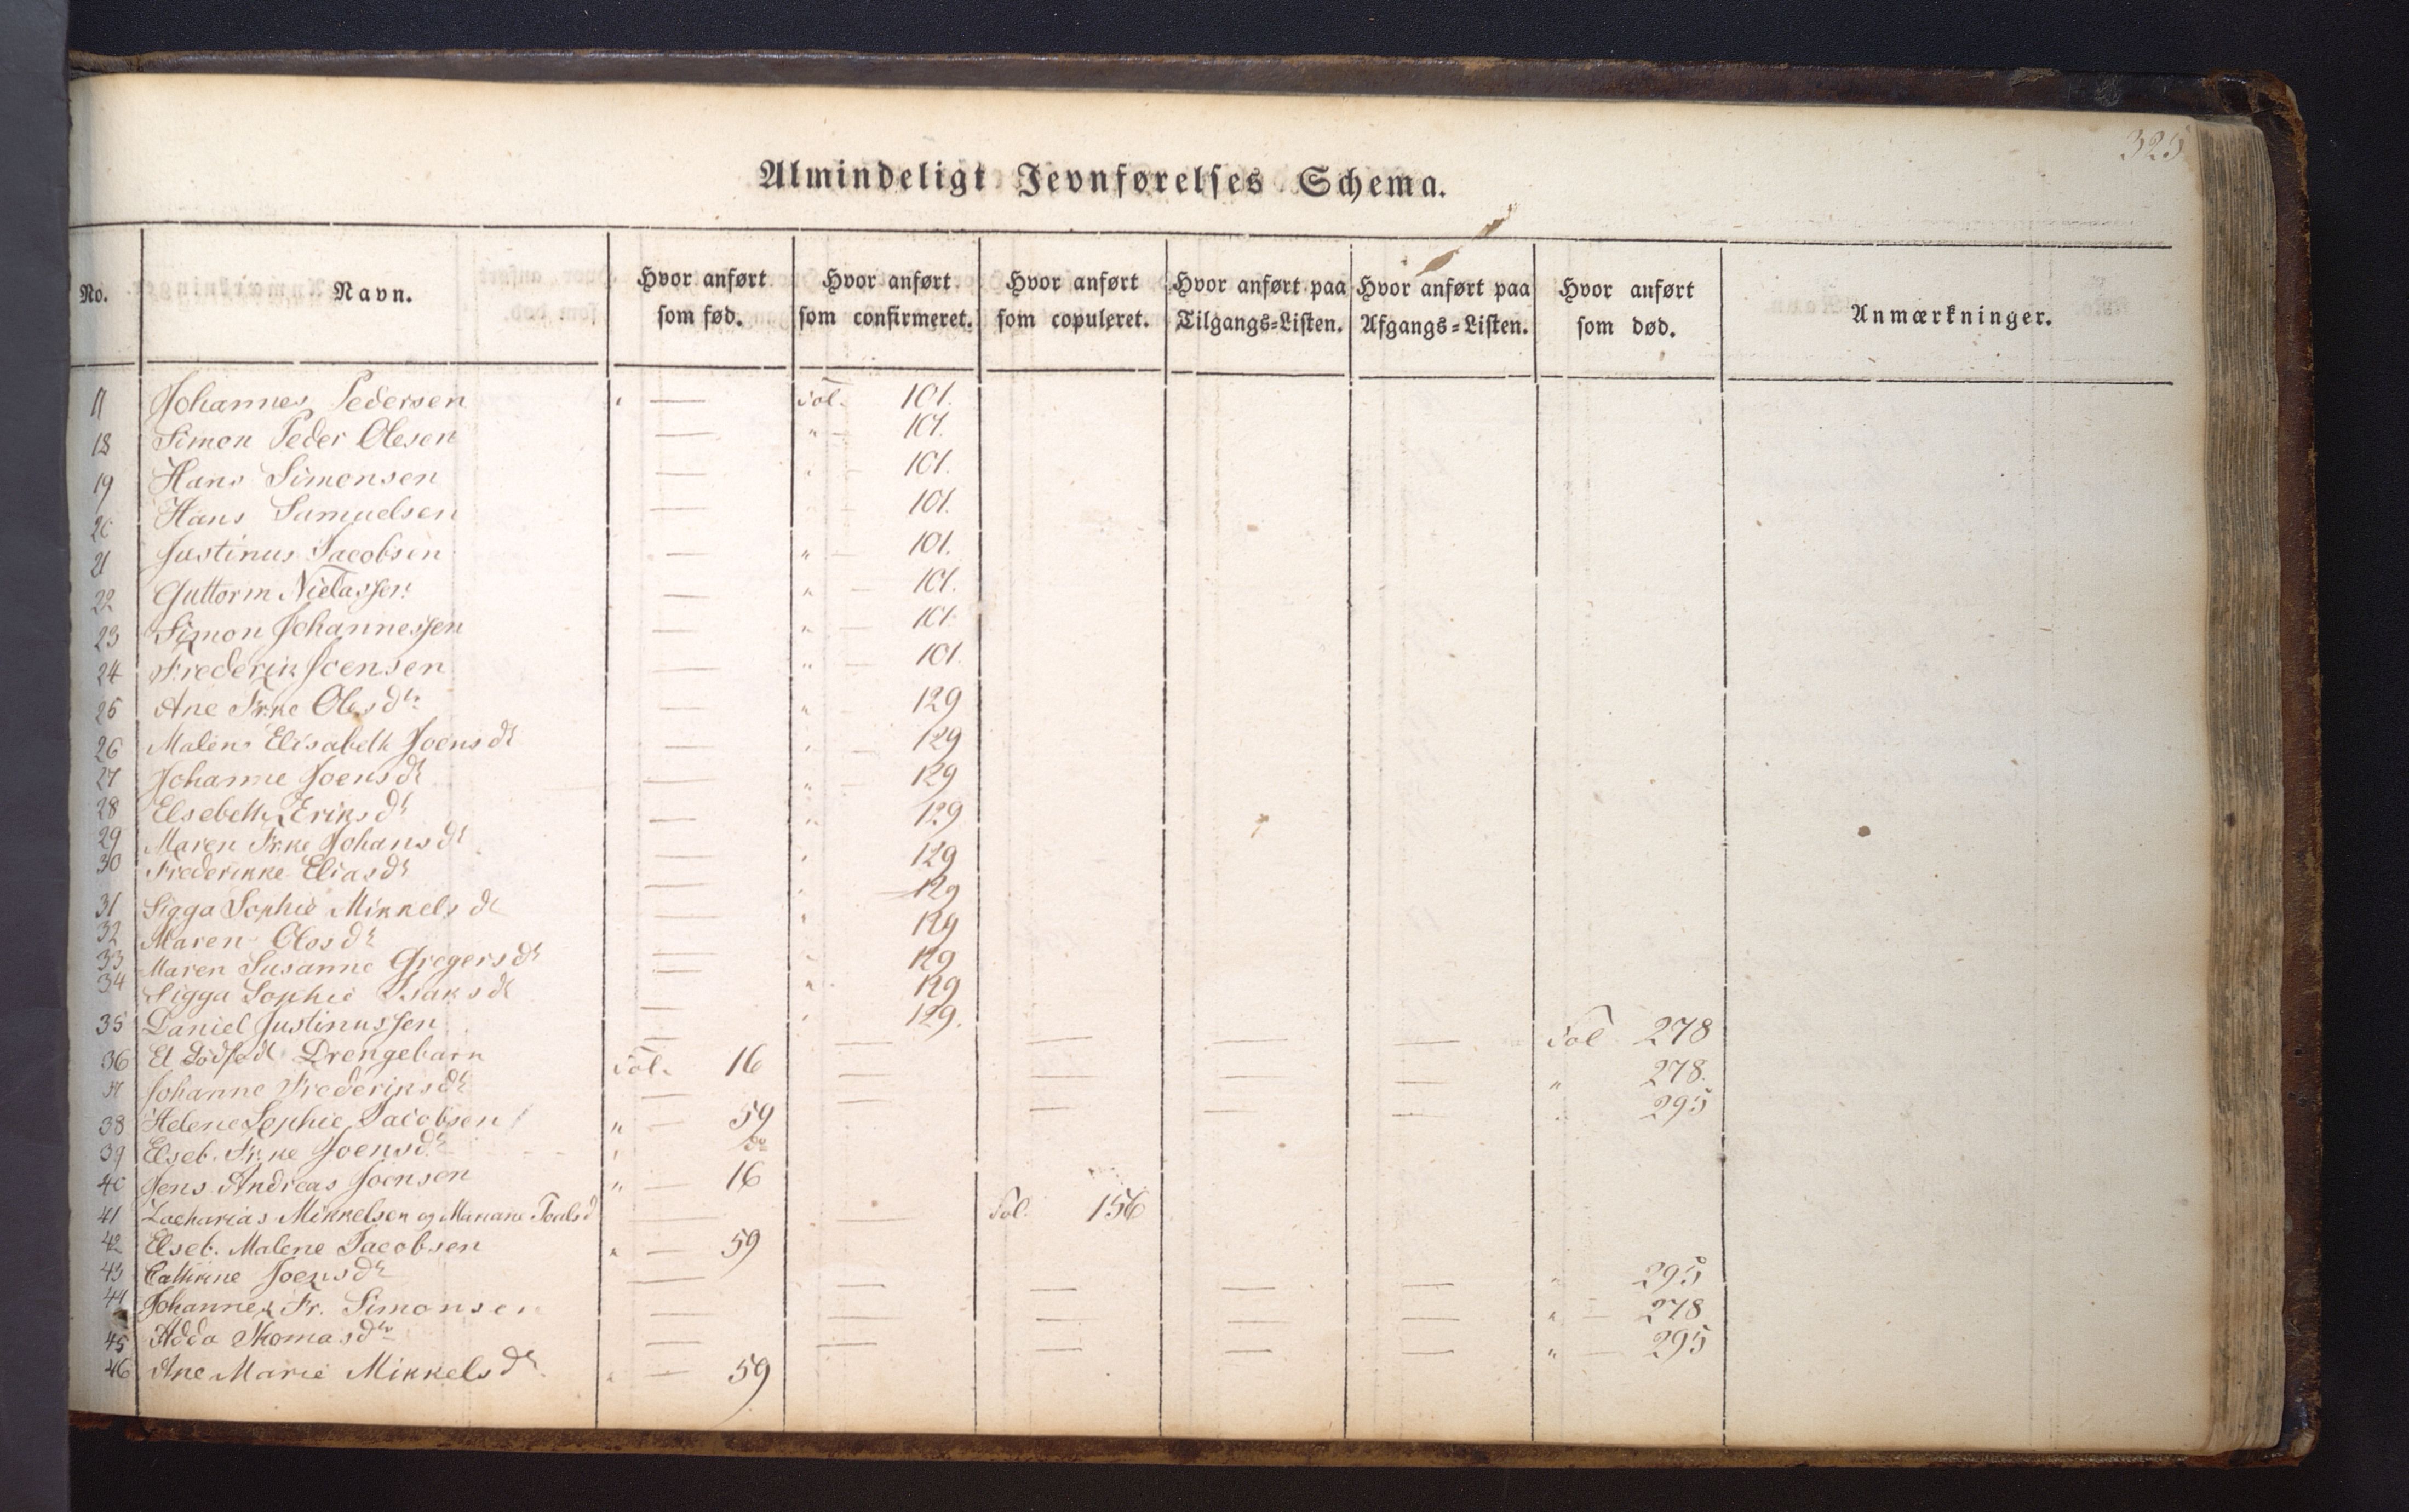 325
Almindeligt Jevnførelses Schema.
No. Navn. Hvor anført som fød. Hvor anført som confirmeret. Hvor anført som copuleret. Hvor anført paa Tilgangs-Listen. Hvor anført paa Afgangs-Listen. Hvor anført som død. Anmærkninger.
17 Johannes Pedersen " — Fol. 101.
18 Simon Peder Olesen — " — 101.
19 Hans Simonsen — " — 101.
20 Hans Samuelsen — " — 101.
21 Justinus Jacobsen — " — 101.
22 Guttorm Niclassen — " — 101.
23 Simon Johannessen — " — 101.
24 Frederik Joensen — " — 101.
25 Ane Frke Olesdtr — " 129
26 Malene Elisabeth Joensdt — " — 129
27 Johanne Joensdt — " — 129
28 Elsebeth Eriksdt — " 129
29 Maren Frke Johansdt — " 129
30 Frederikke Eliasdt — " 129
31 Sigga Sophie Mikkelsdt — " 129
32 Maren Olesdt — " 129
33 Maren Susanne Gregersdt — " 129
34 Sigga Sophie Isaksdt — " 129.
35 Daniel Justinussen — — — — — Fol 278
36 Et Dødfødt Drengebarn Fol. 16 — — — — " 278.
37 Johanne Frederiksdt — — — — — " 295
38 Helene Sophie Jacobsen " — 59
39 Elseb. Frke Joensdt " do
40 Jens Andreas Joensen " — 16
41 Zacharias Mikkelsen og Mariane Joelsd — — Fol. 156
42 Elseb. Malene Jacobsen " — 59
43 Cathrine Joensdt — — — — — " 295
44 Johannes Fr. Simonsen — — — — — " — 278
45 Adda Thomasdtr — — — — — " — 295
46 Ane Marie Mikkelsdt " — 59